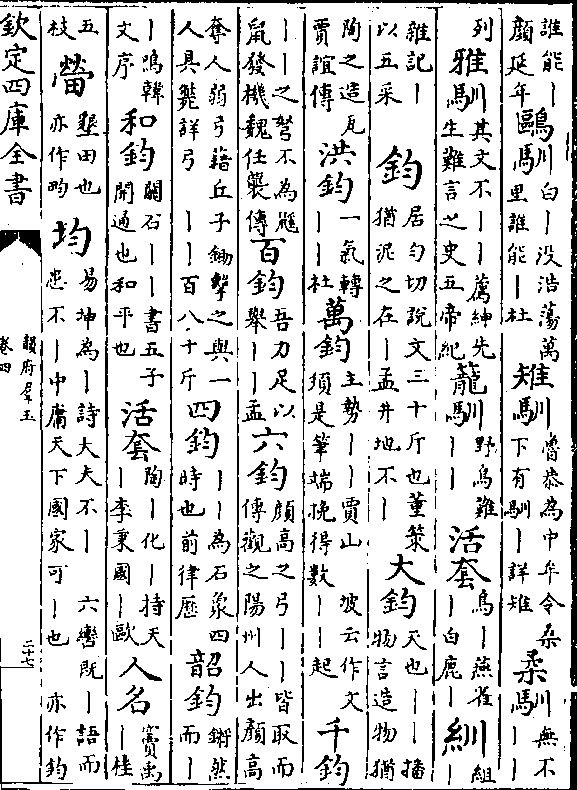 誰能丨顔延年 鷗馴 白丨没浩蕩萬里誰能丨杜 雉馴 魯恭為中牟令桑下有馴丨詳雉 柔馴 無不丨丨
列 雅馴 其文不丨丨薦紳先生難言之史五帝紀 籠馴 野鳥難丨丨 活套 鳥丨燕雀丨白鹿丨 紃 組丨
雜記丨以五采 鈞 居勻切説文三十斤也董策猶泥之在丨孟井地不丨 大鈞 天也丨丨播物言造物猶
陶之造瓦賈誼傳 洪鈞 一氣轉丨丨杜 萬鈞 主勢丨丨賈山 坡云作文須是筆端挽得數丨丨起 千鈞
丨丨之弩不為鼷鼠發機魏任襲傳 百鈞 吾力足以舉丨丨孟 六鈞 顔高之弓丨丨皆取而傳觀之陽州人出顔高
奪人弱弓藉丘子鉏擊之與一人具斃詳弓 丨丨百八十斤 四鈞 丨丨為石象四時也前律歷 韶鈞 鏘然而丨
丨鳴韓文序 和鈞 關石丨丨書五子 開通也和平也 活套 陶丨化丨持天丨李秉國丨歐 人名 竇禹丨桂
五枝 墾田也亦作畇 均 易坤為丨詩大夫不丨 六轡既丨語而患不丨中庸天下國家可丨也 亦作鈞
欽定四庫全書
韻府羣玉
卷四
二十七